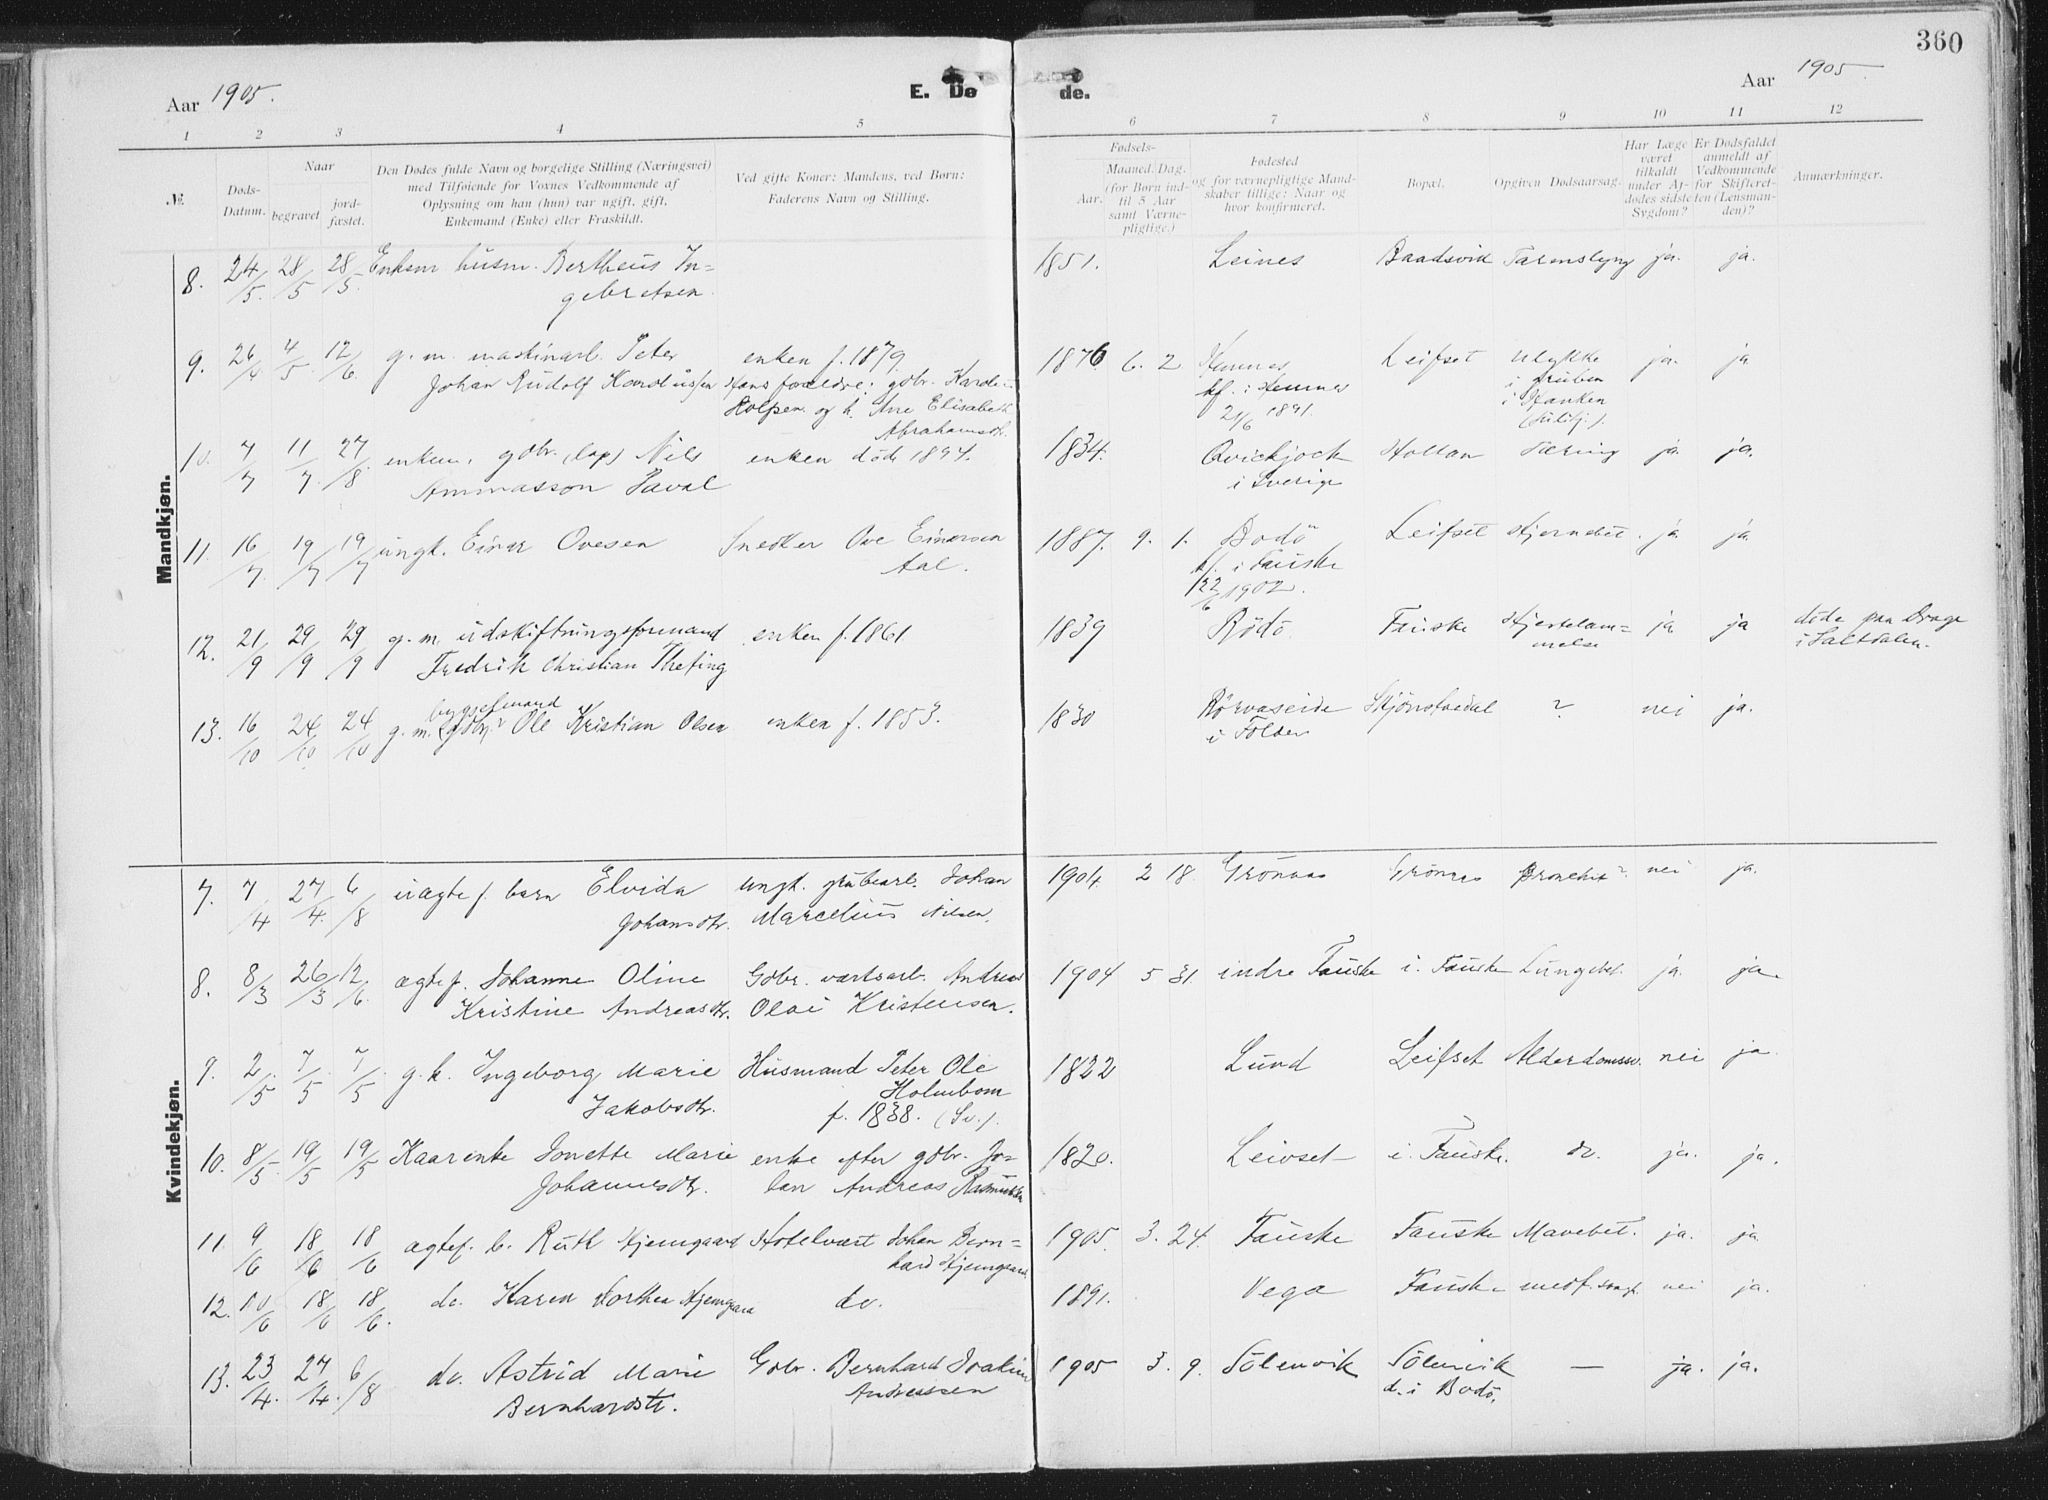 360
Aar 1905.
E. Dø de.
Aar 1905.
1 2 3 4 5 6 7 8 9 10 11 12
№.
Døds-
Datum.
Naar
begravet
jord-
fæstet.
Den Dødes fulde Navn og borgelige Stilling (Næringsvei)
med Tilføiende for Voxnes Vedkommende af
Oplysning om han (hun) var ugift, gift,
Enkemand (Enke) eller Fraskildt.
Ved gifte Koner: Mandens, ved Børn:
Faderens Navn og Stilling.
Fødsels-
Aar.
Maaned. Dag.
(for Børn ind-
til 5 Aar
samt Værne-
pligtige.)
Fødested
og for værnepligtige Mand-
skaber tillige: Naar og
hvor konfirmeret.
Bopæl.
Opgiven Dødsaarsag.
Har Læge
været
tilkaldt
under Af-
dødes sidste
Sygdom?
Er Dødsfaldet
anmeldt af
Vedkommende
for Skifteret-
ten (Lensman-
den)?
Anmærkninger.
Mandkjøn.
8. 24/5. 28/5 28/5. Enkem husm. Bertheus In- 1851. Leines Baadsvik Tarmslyng ja. ja.
gebretsen.
9. 26/4 4/5. 12/6. g. m. maskinarb. Peter enken f. 1879. 1876 6. 2 Hemnes Leifset ulykke ja. ja
Johan Rudolf Karoliussen Hans forældre: gdbr. Karole- kf. i Hemnes i gruben
Rolfsen og h. Ane Elisabeth 21/6 1891. i Hanken
Abrahamsdtr. (Sulitj.).
10. 7/7 11/7. 27/8. enkem. gdbr. (lap) Nils enken död 1894. 1834. Qvickjock Hollan Tæring ja ja.
Ammasson Paval i Sverige
11. 16/7 19/7 19/7 ungk. Einar Ovesen Snedker Ove Einarsen 1887. 9. 1. Bodö Leifset Hjernebet. ja ja
Aal. kf. i Fauske
22/6 1902.
12. 21/9 29/9 29/9 g. m. udskiftningsformand enken f. 1861 1839 Rödö. Fauske Hjertelam- ja ja döde paa Drage
Fredrik Christian Thesing melse i Saltdalen.
bygselmand
13. 16/10 24/10 24/10 g. m. (gdbr.? Ole Kristian Olsen enken f. 1853. 1830 Rørvaseide Skjönstuedal ? nei ja.
i Folden
Kvindekjøn.
7. 7/4 27/4. 6/8 uægte f. barn Elvida ungk. grubearb. Johan 1904 2 18. Grönnas Grönnes Bronchit? nei ja.
Johansdtr. Marcelius Nilsen.
8. 8/3 26/3 12/6. ægtef. Johanne Oline Gdbr. vartsarb. Andreas 1904 5 31. indre Fauske i. Fauske Lungebet. ja. ja.
Kristine Andreasdtr. Olai Kristensen.
9. 2/5 7/5 7/5 g. k. Ingeborg Marie Husmand Peter Ole 1822 Lund Leifset Alderdomssv. nei ja.
Jakobsdtr. Holmbom
f. 1838. (Sv.).
10. 8/5 19/5 19/5 Kaarenke Jonette Marie enke efter gdbr. Jo- 1820. Leivset i. Fauske. do. ja. ja.
Johannesdtr. han Andreas Rasmussen
11. 9/6 18/6 18/6 ægtef. b. Ruth Hjemgaard Hotelvært Johan Bern- 1905. 3. 24. Fauske Fauske Mavebet. ja. ja.
hard Hjemgaard.
12. 10/6 18/6 18/6. do. Karen Dorthea Hjemgaard do. 1891. Vega Fauske medf. svagh. nei ja.
13. 23/4. 27/4. 6/8 do. Astrid Marie Gdbr. Bernhard Joakim 1905 3. 9. Sölenvik Sölenvik — ja. ja.
Bernhardsdtr. Andressen d. i Bodö.